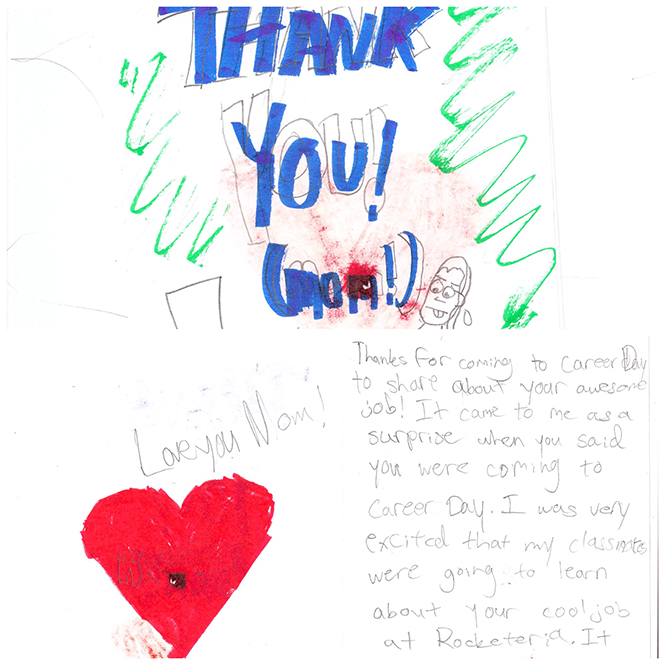 THANK
YOU!
(mom!)
Love you Mom!
Thanks for coming to Career Day
to share about your awesome
job! It came to me as a
surprise when you said
you were coming to
Career Day. I was very
excited that my classmates
were going to learn
about your cool job
at Rocketeria. It